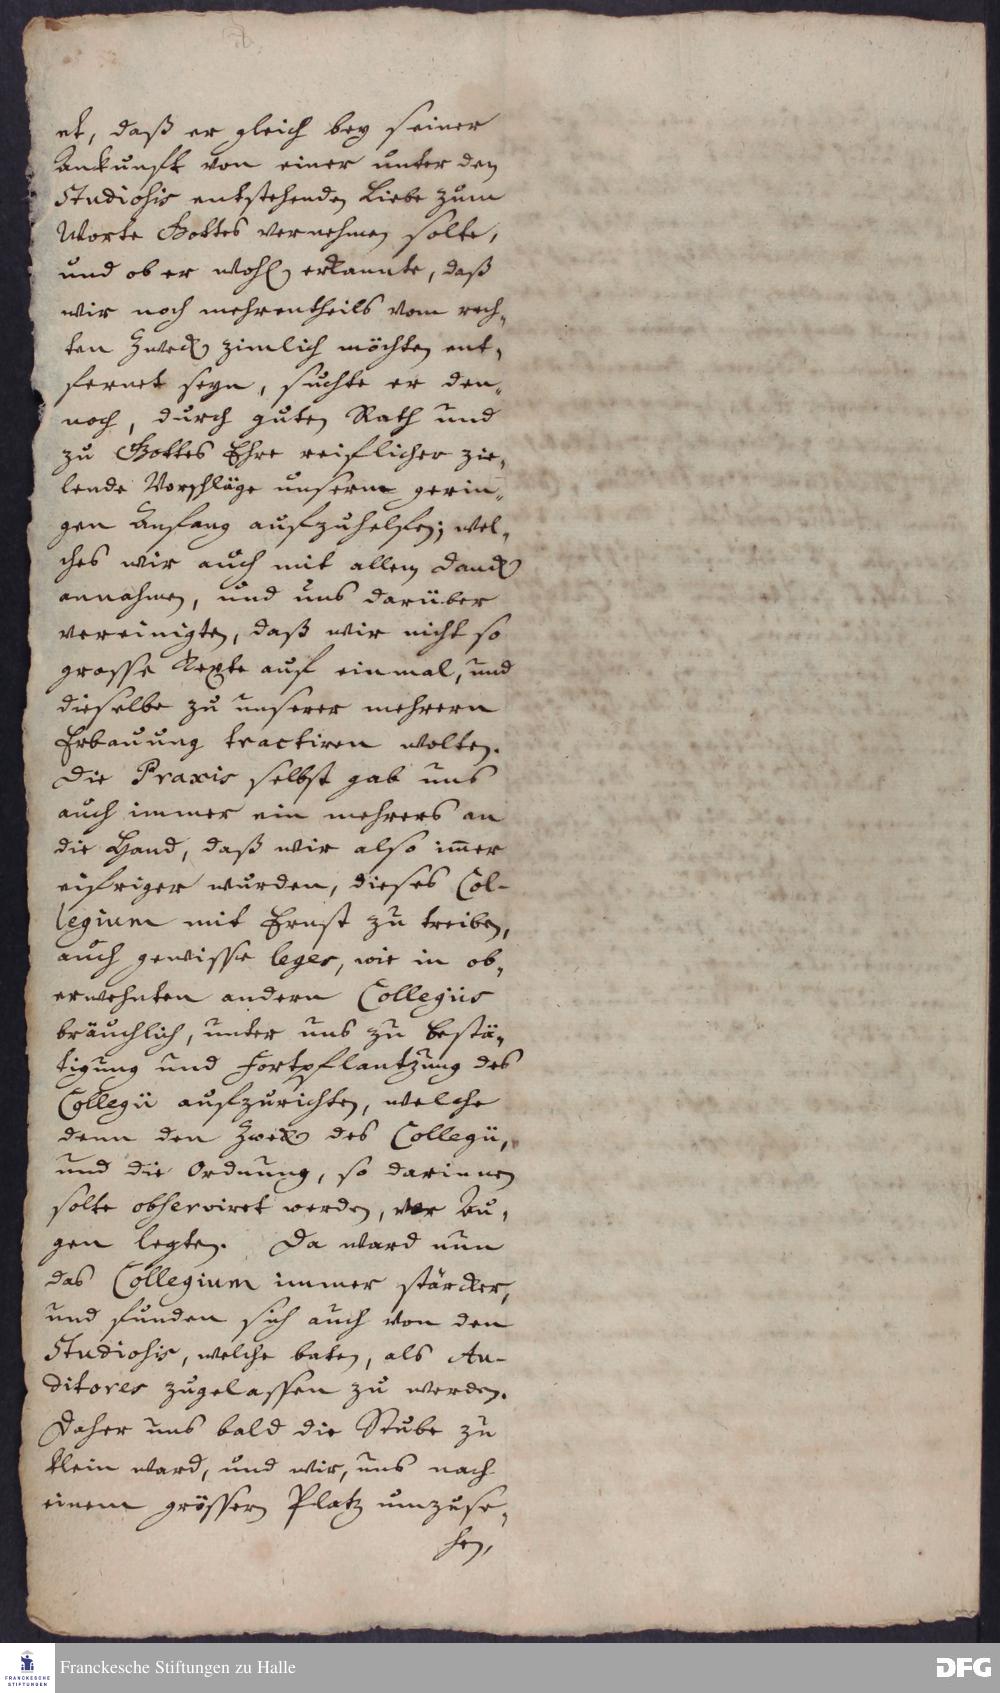 et, daß er gleich bey seiner
Ankunfft von einer unter den
Studiosis entstehenden Liebe zum
Worte Gottes vernehmen solte,
und ob er wohl erkannte, daß
wir noch mehrentheils vom rech-
ten Zweck zimlich möchten ent-
fernet seyn, suchte er den-
noch, durch guten Rath und
zu Gottes Ehre reiflicher zie-
lende Vorschläge unserm gerin-
gen Anfang aufzuhelfen; wel-
ches wir auch mit allem Danck
annahmen, und uns darüber
vereinigten, daß wir nicht so
grosse Texte auf einmal, und
dieselbe zu unserer mehrern
Erbauung tractiren wolten.
Die Praxis selbst gab uns
auch immer ein mehrers an
die Hand, daß wir also im̄er
eifriger wurden, dieses Col-
legium mit Ernst zu treiben,
auch gewisse leges, wie in ob-
erwehnten andern Collegiis
bräuchlich, unter uns zu bestä-
tigung und Fortpflantzung des
Collegii aufzurichten, welche
denn den Zweck des Collegii,
und die Ordnung, so darinnen
solte observiret werden, vor Au-
gen legten. Da ward nun
das Collegium immer stärcker,
und funden sich auch von den
Studiosis, welche baten, als Au-
ditores zugelassen zu werden.
Daher uns bald die Stube zu
klein ward, und wir, uns nach
einem grössern Platz umzuse-
hen,
Franckesche Stiftungen zu Halle
FRANCKESCHE
STIFTUNGEN
DFG